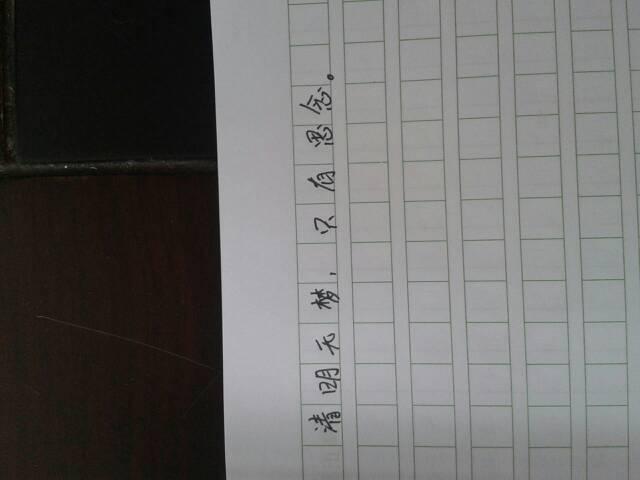 清明无梦，只有思念。